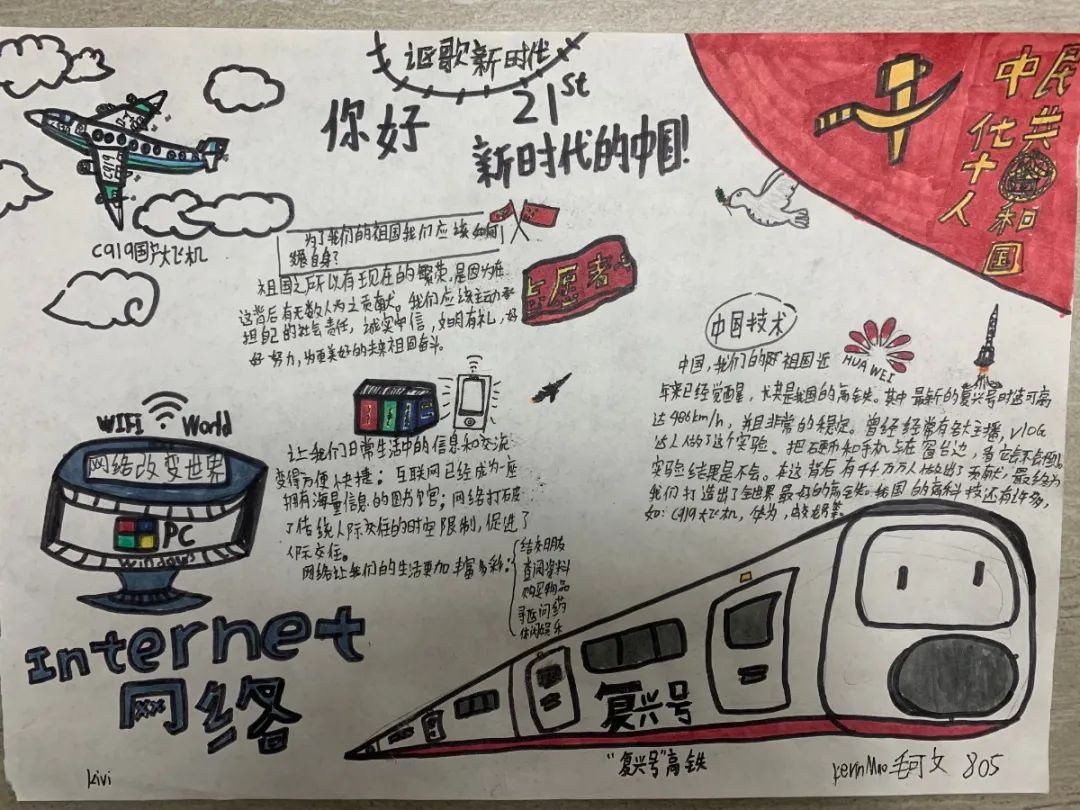 讴歌新时代
你好
21st
新时代的中国!
中 民
华 共
人 和
国
C919
C919国产大飞机
为了我们的祖国我们应该如何
自身?
祖国之所以有现在的繁荣,是因为在
这背后有无数人为之贡献。我们应该主动承
担自己的社会责任,诚实守信,文明有礼,好
好努力,为更美好的未来祖国奋斗。
志愿者
中国技术
HUAWEI
中国,我们的 祖国近
年来已经觉醒,尤其是我国的高铁。其中最新的复兴号时速可高
达486km/h,并且非常的稳定。曾经经常有各大主播,vlog
达人做了这个实验。把硬币和手机 在窗台边,看它会不会倒。
实验结果是不会。在这背后有千千万万人做出了贡献,最终为
我们打造出了全世界最好的高铁。我国的高科技还有许多,
如:C919大飞机,华为,
WIFI World
网络改变世界
PC
Windows
让我们日常生活中的信息和交流
变得方便快捷:互联网已经成为一座
拥有海量信息的图书馆;网络打破
了传统人际交往的时空限制,促进了
人际交往。
网络让我们的生活更加丰富多彩:
结交朋友
查阅资料
购买物品
寻医问药
休闲娱乐
Internet
网络
复兴号
"复兴号"高铁
kivi
毛珂文 805